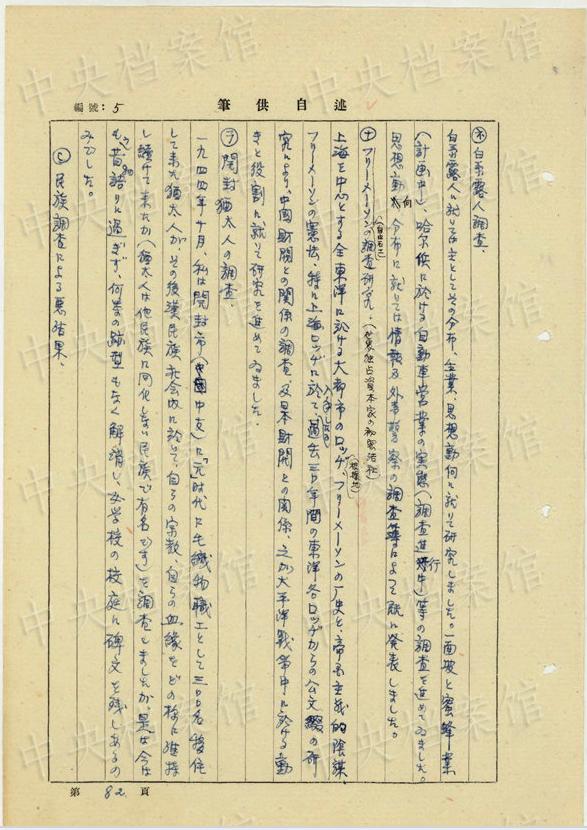 述自供筆
編號：5
㋧白系露人調査、
白系露人に就いては主としてその分布、生業、思想動向に就いて研究しました。一面坡と蜜蜂業
(計画中)、哈尔浜に於ける自動車営業の実態(調査進行中)等の調査を進めてゐました。
思想動向分布に就いては情報及外事警察の調査等によって既に発表しました。
㋤フリーメーソンの調査研究、(世界独占資本家の秘密結社)
(自由石工)
上海を中心とする全東洋に於ける大都市のロッヂ、フリーメーソンの厂史と、帝国主義的陰謀、
(根據地)
フリーメーソンの憲法、特に上海ロッヂに於て入手したる過去三〇年間の東洋各ロッヂからの公文綴の研
究により、中国財閥との関係の調査及日本財閥との関係、之が太平洋戦争中に於ける動
きと役割に就いて研究を進めてゐました。
㋶開封猶太人の調査、
一九四四年十月、私は開封市(中支)に「元」時代に毛織物職工として三〇〇名移住
して来た猶太人が、その後漢民族社会内に於いて、自らの宗教、自らの血縁をどの様に維持
し続けて来たか(猶太人は他民族に同化しない民族で有名です)を調査しましたが、是は今は
も昔語りに過ぎず、何等の跡型もなく解消し、女学校の校庭に碑文を残しあるの
みでした。
民族調査による悪結果、
第 82 頁
中央档案馆